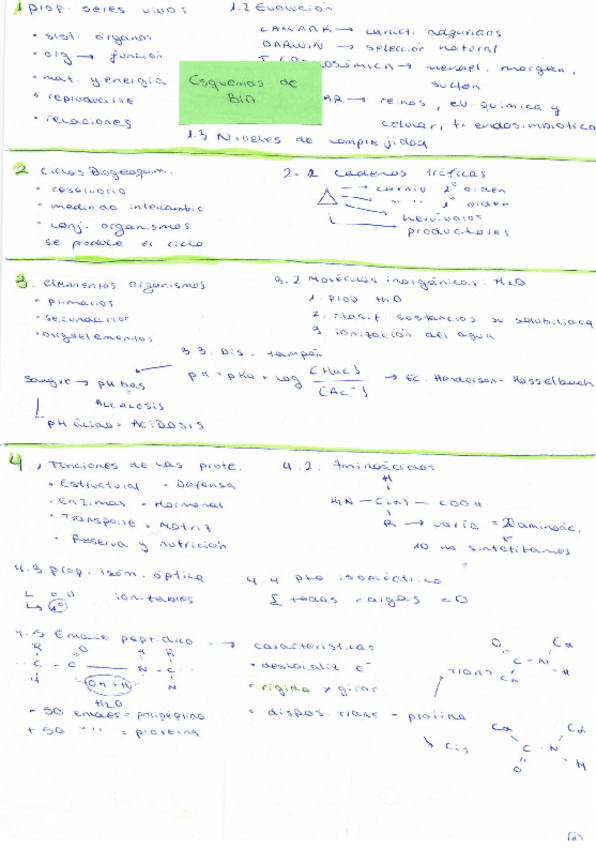 1 prop. seres vivos
1.2 Evolución
• sist. órganos
• org → función
• mat. y energía
• reproducirse
• relaciones
LAMARK → caráct. adquiridos
DARWIN → selección natural
→ mendel, morgan, sutton
→ reinos, ev. química y celular, t. endosimbiótica
Esquemas de BIO
1.3 Niveles de complejidad
2 Ciclos Biogeoquím.
• reservorio
• medio de intercambio
• conj. organismos
se pondrá el ciclo
2.2 cadenas tróficas
carniv 2º orden
" " 1º orden
hervívoros
productores
3. elementos organismos
• primarios
• secundarios
• oligoelementos
3.2 Moléculas inorgánicas: H2O
1. prop H2O
2. clasif. sustancias su solubilidad
3. ionización del agua
3.3. Dis. tampón
sangre → pH bas
ALCALOSIS
pH ácido = ACIDOSIS
pH = pKa + log [HAc] / [Ac-] → Ec. Henderson-Hasselbach
4. Funciones de las prote.
• Estructural • Defensa
• Enzimas • Hormonal
• Transporte • Matriz
• Reserva y nutrición
4.2. Aminoácidos
H
H2N — C(α) — COOH
R → varía = 20 aminoác.
10 no sintetitamos
4.3 prop. isóm. óptica
ionizables
4.4 pto isoeléctrico
Σ todas cargas = 0
4.5 Enlace peptídico → características
R O H R
C — C — N — C
H OH + H H
H2O
- 50 enlaces = polipéptido
+ 50 " " = proteína
• deslocaliz e-
• rígida x girar
• dispos. trans - prolina
trans
O Cα
C - N
Cα H
Cis
Cα Cα
C - N
O H